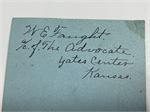 W E Faught.
c/of The Advocate
Yates Center
Kansas.